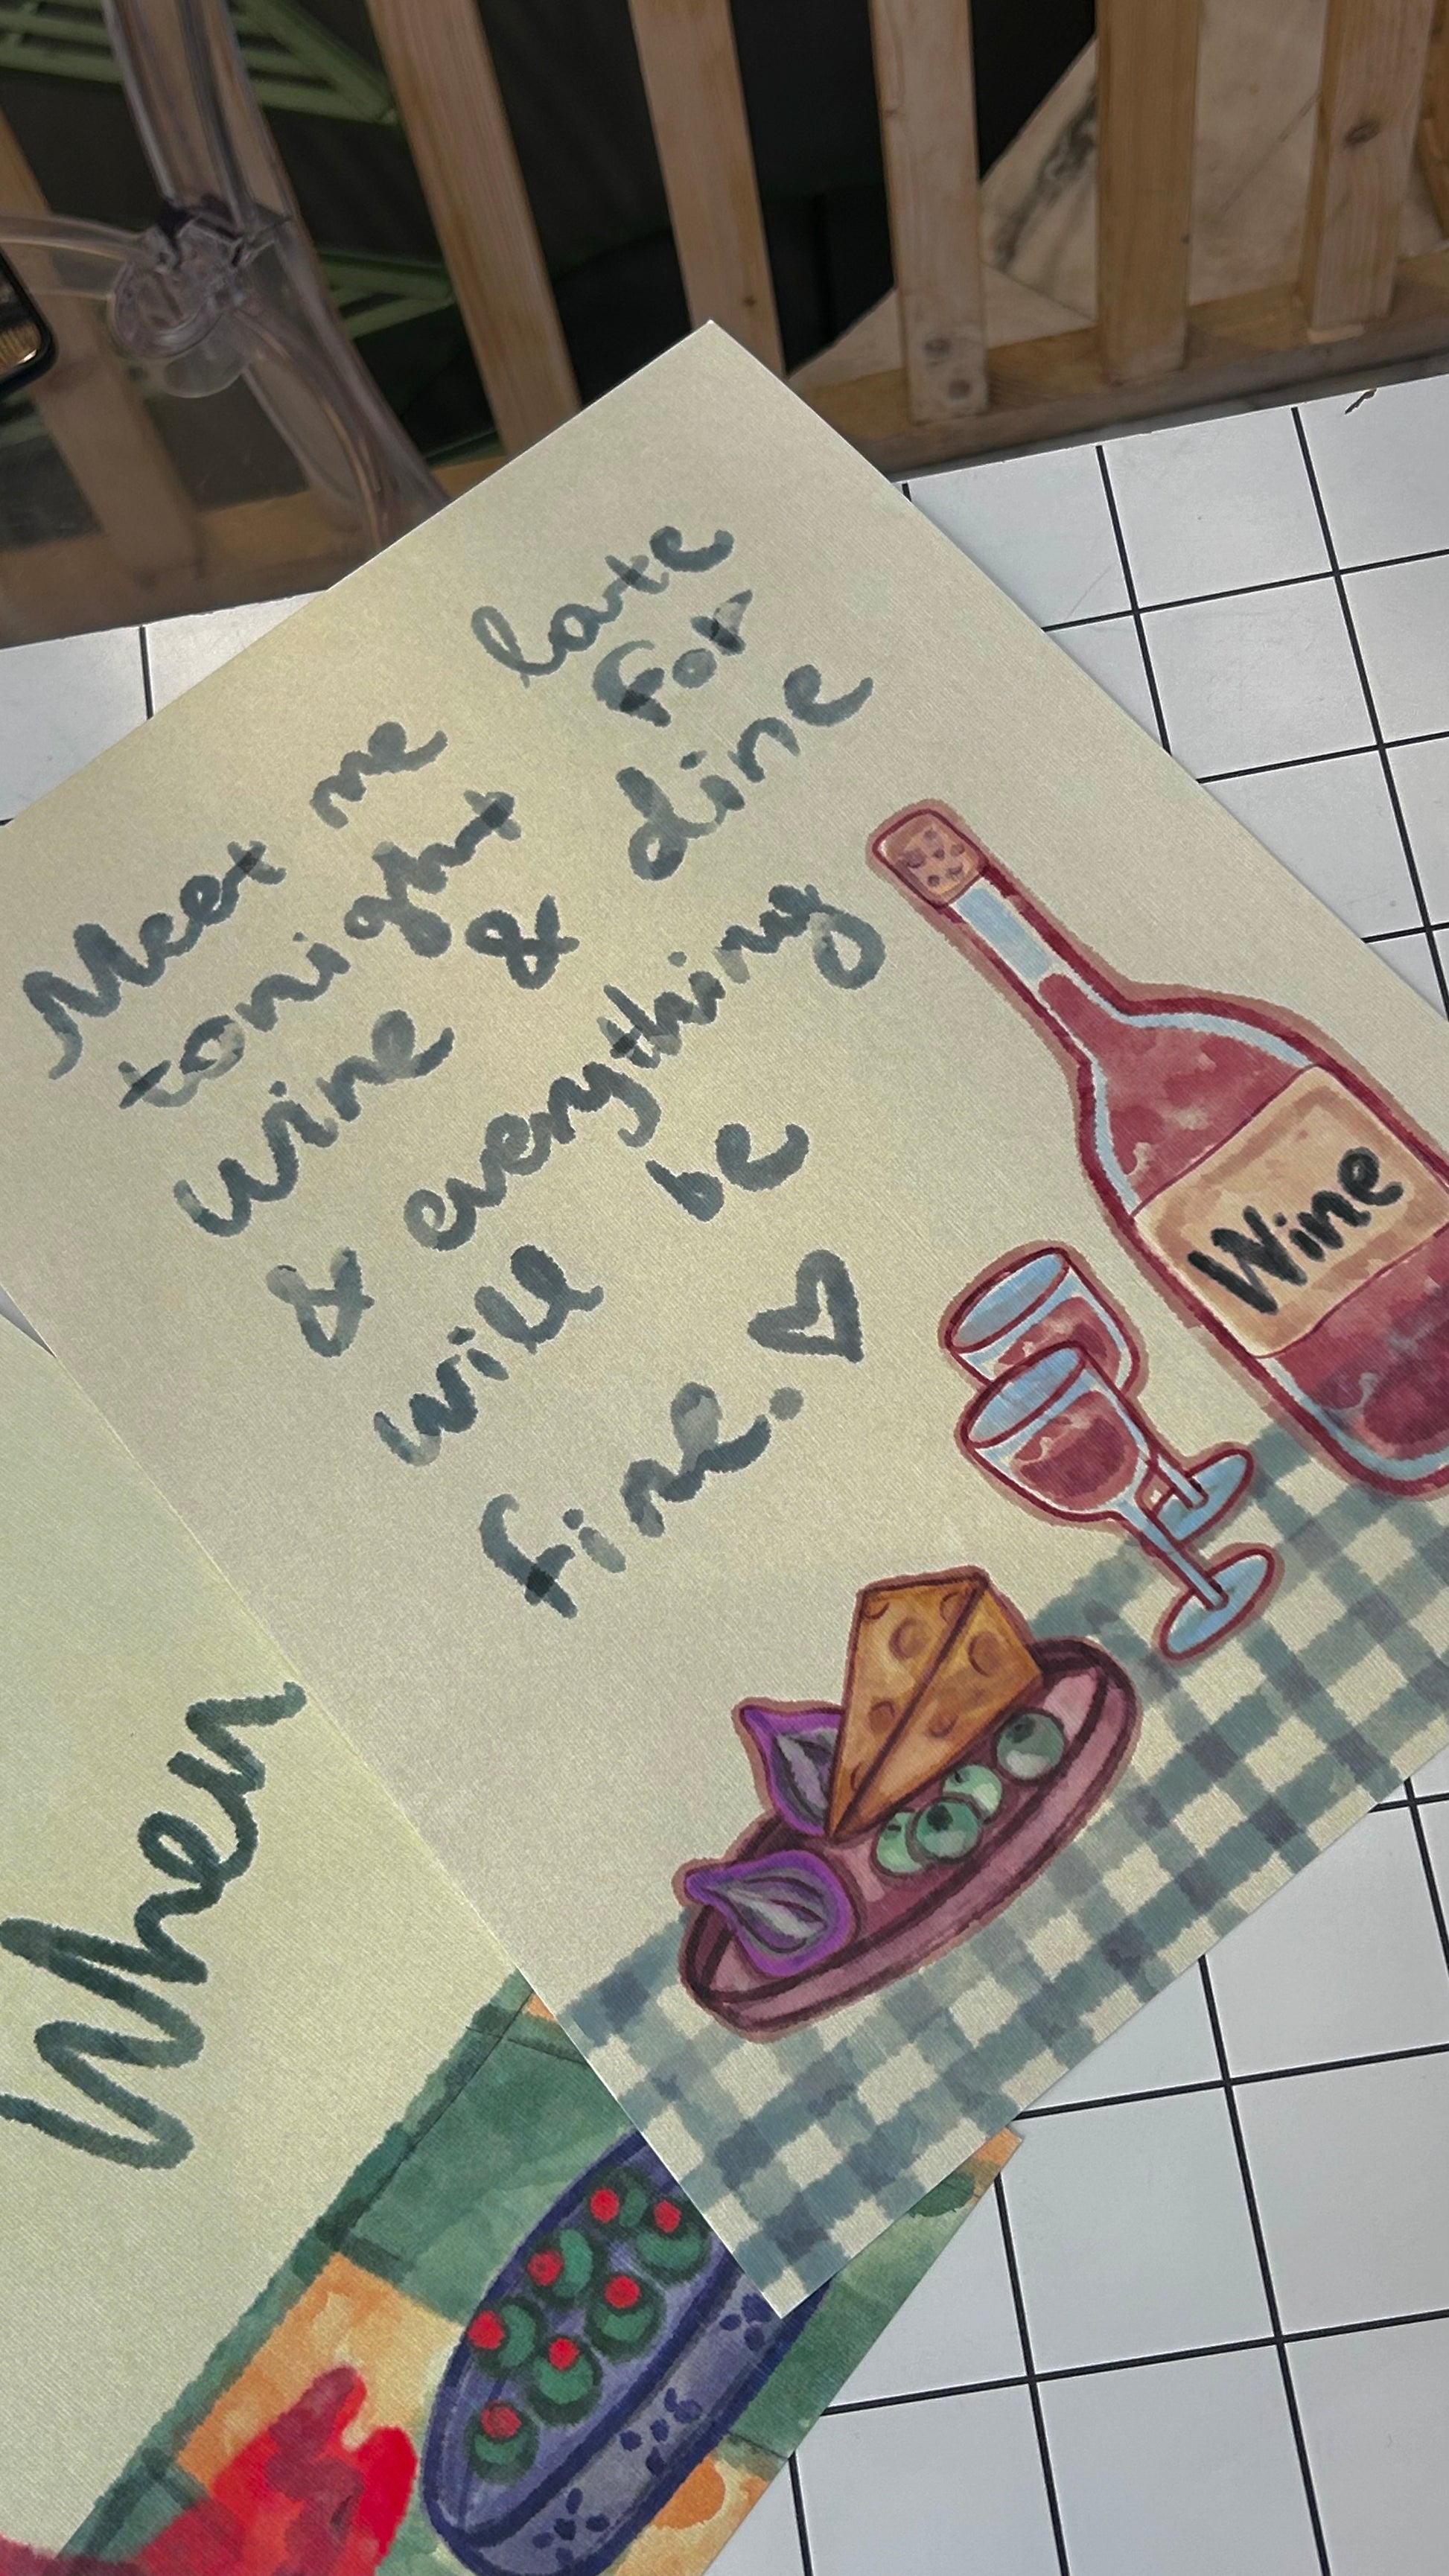 Meet me late
tonight for
wine & dine
& everything
will be
fine.
Wine
When